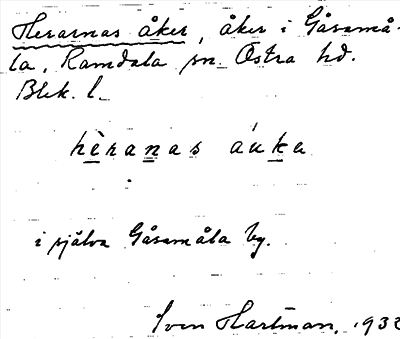 Herarnas åker, åker i Gåsamå-
la, Ramdala sn. Östra hd.
Blek. l.
hèranas áuka
i själva Gåsamåla by.
Sven Hartman, 1933